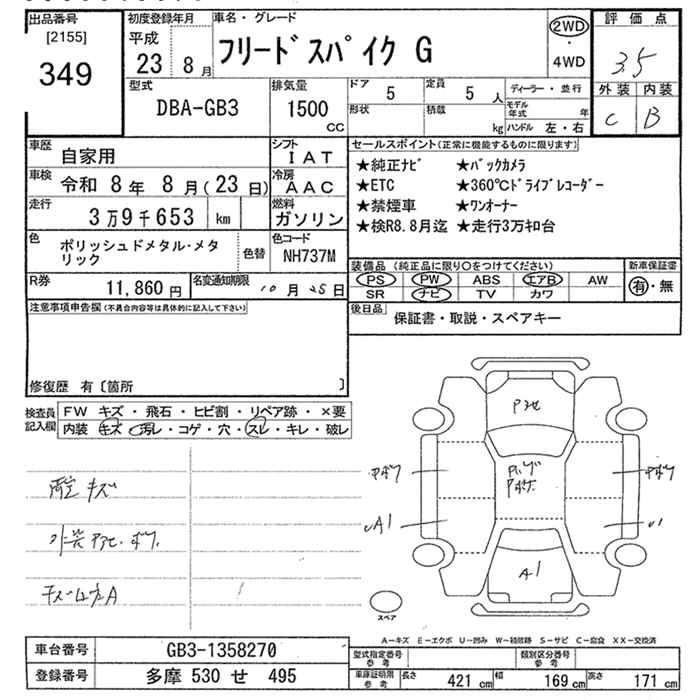 出品番号
[2155]
349
初度登録年月
平成
23年 8月
車名・グレード
フリードスパイク G
2WD
・
4WD
評価点
3.5
外装 内装
C B
型式
DBA-GB3
排気量
1500
CC
ドア 5
定員 5 人
形状
積載 kg
ディーラー・並行
モデル年式 年
ハンドル 左・右
車歴
自家用
シフト
IAT
車検 令和 8年 8月(23日)
冷房
AAC
走行
3万9千653 km
燃料
ガソリン
色
ポリッシュドメタル・メタリック
色替
色コード
NH737M
R券
11,860円
名変通知期限
10月25日
セールスポイント(正常に機能するものに限ります)
★純正ナビ ★バックカメラ
★ETC ★360℃ドライブレコーダー
★禁煙車 ★ワンオーナー
★検R8.8月迄 ★走行3万キロ台
装備品 (純正品に限り○をつけてください)
PS PW ABS エアB AW
SR ナビ TV カワ
新車保証書
有・無
後日品
保証書・取説・スペアキー
注意事項申告欄(不具合内容等は具体的に記入して下さい)
修復歴 有〔箇所 〕
検査員記入欄
FW キズ・飛石・ヒビ割・リペア跡・×要
内装 キズ・汚レ・コゲ・穴・スレ・キレ・破レ
キズ
A1
A1
スペア
A−キズ E−エクボ U−凹み W−補修跡 S−サビ C−腐食 XX−交換済
車台番号 GB3-1358270
登録番号 多摩 530 せ 495
型式指定番号
参考
類別区分番号
参考
車庫証明用
参考
長さ 421 cm
幅 169 cm
高さ 171 cm